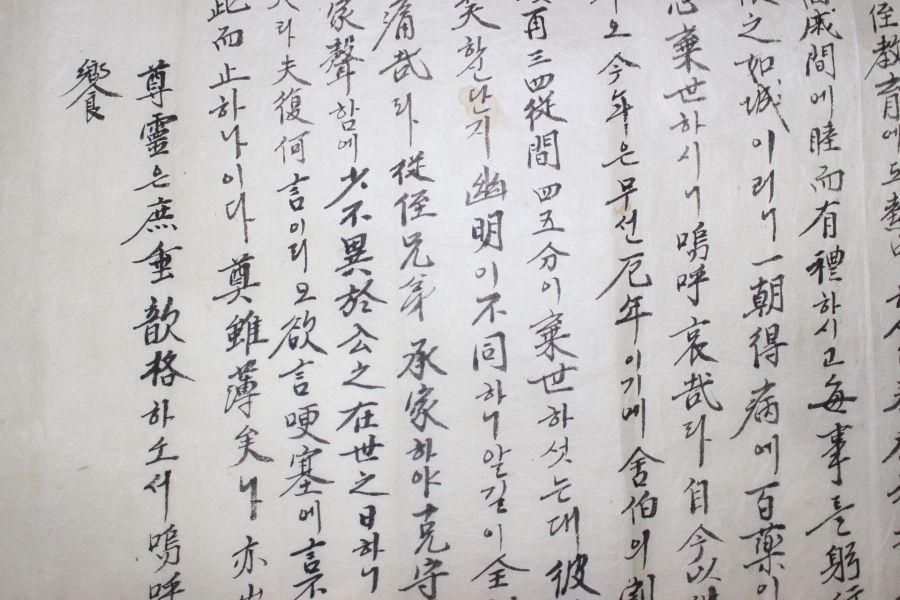 侄教育에도
戚間에睦而有禮하시고每事를躬行
之如城이러니一朝得病에百藥이
棄世하시니嗚呼哀哉라自今以
오今年은무선厄年이기에舍伯의
再三四從間四五分이棄世하섯는대彼
할난지幽明이不同하니알길이全
痛哉라從侄兄弟承家하야克守
家聲함에少不異於公之在世之日하니
라夫復何言이리오欲言哽塞에言不
此而止하나이다奠雖薄矣나亦
尊靈은庶垂歆格하소서嗚呼
饗